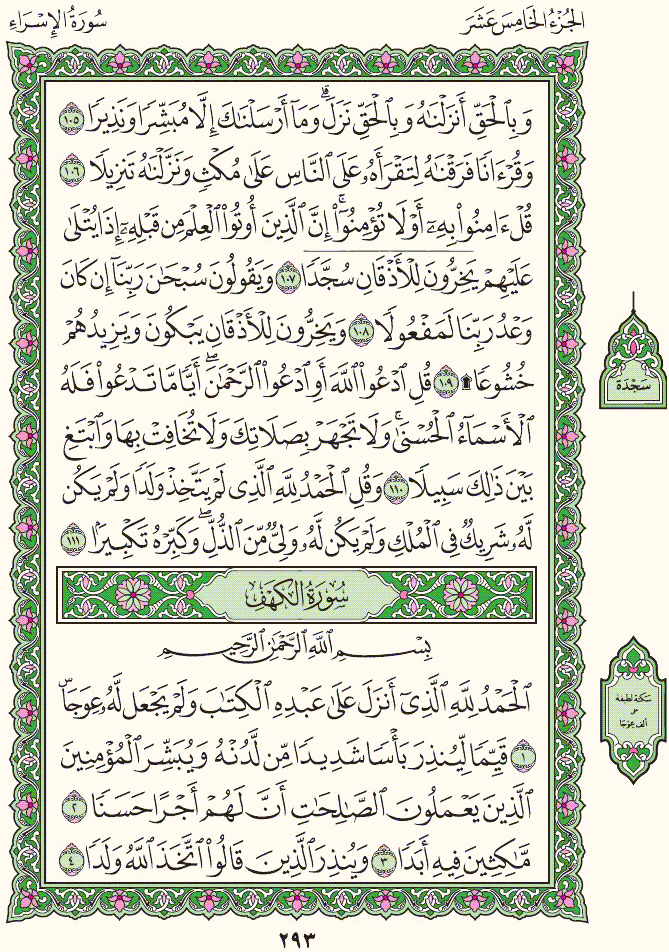 الجزء الخامس عشر
سورة الإسراء
وَبِٱلْحَقِّ أَنزَلْنَٰهُ وَبِٱلْحَقِّ نَزَلَ ۗ وَمَآ أَرْسَلْنَٰكَ إِلَّا مُبَشِّرًا وَنَذِيرًا ١٠٥
وَقُرْءَانًا فَرَقْنَٰهُ لِتَقْرَأَهُۥ عَلَى ٱلنَّاسِ عَلَىٰ مُكْثٍ وَنَزَّلْنَٰهُ تَنزِيلًا ١٠٦
قُلْ ءَامِنُوا۟ بِهِۦٓ أَوْ لَا تُؤْمِنُوٓا۟ ۚ إِنَّ ٱلَّذِينَ أُوتُوا۟ ٱلْعِلْمَ مِن قَبْلِهِۦٓ إِذَا يُتْلَىٰ
عَلَيْهِمْ يَخِرُّونَ لِلْأَذْقَانِ سُجَّدًا ١٠٧ وَيَقُولُونَ سُبْحَٰنَ رَبِّنَآ إِن كَانَ
وَعْدُ رَبِّنَا لَمَفْعُولًا ١٠٨ وَيَخِرُّونَ لِلْأَذْقَانِ يَبْكُونَ وَيَزِيدُهُمْ
خُشُوعًا ۩ ١٠٩ قُلِ ٱدْعُوا۟ ٱللَّهَ أَوِ ٱدْعُوا۟ ٱلرَّحْمَٰنَ ۖ أَيًّا مَّا تَدْعُوا۟ فَلَهُ
ٱلْأَسْمَآءُ ٱلْحُسْنَىٰ ۚ وَلَا تَجْهَرْ بِصَلَاتِكَ وَلَا تُخَافِتْ بِهَا وَٱبْتَغِ
بَيْنَ ذَٰلِكَ سَبِيلًا ١١٠ وَقُلِ ٱلْحَمْدُ لِلَّهِ ٱلَّذِى لَمْ يَتَّخِذْ وَلَدًا وَلَمْ يَكُن
لَّهُۥ شَرِيكٌ فِى ٱلْمُلْكِ وَلَمْ يَكُن لَّهُۥ وَلِىٌّ مِّنَ ٱلذُّلِّ ۖ وَكَبِّرْهُ تَكْبِيرًۢا ١١١
سُورَةُ الكَهْفِ
بِسْمِ ٱللَّهِ ٱلرَّحْمَٰنِ ٱلرَّحِيمِ
ٱلْحَمْدُ لِلَّهِ ٱلَّذِىٓ أَنزَلَ عَلَىٰ عَبْدِهِ ٱلْكِتَٰبَ وَلَمْ يَجْعَل لَّهُۥ عِوَجَا ۜ
١ قَيِّمًا لِّيُنذِرَ بَأْسًا شَدِيدًا مِّن لَّدُنْهُ وَيُبَشِّرَ ٱلْمُؤْمِنِينَ
ٱلَّذِينَ يَعْمَلُونَ ٱلصَّٰلِحَٰتِ أَنَّ لَهُمْ أَجْرًا حَسَنًا ٢
مَّٰكِثِينَ فِيهِ أَبَدًا ٣ وَيُنذِرَ ٱلَّذِينَ قَالُوا۟ ٱتَّخَذَ ٱللَّهُ وَلَدًا ٤
سَجْدَة
سكتة لطيفة
على
ألف عِوَجَا
٢٩٣